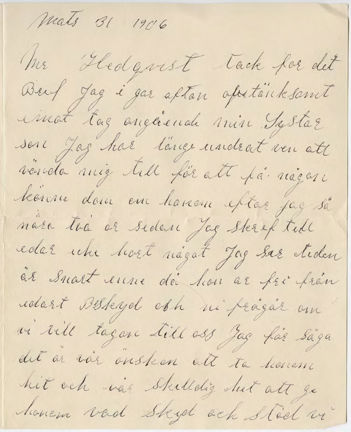 Mats 31 1906
Mr Hedqvist tack for det
Bref Jag i gar afton
emot tog angående min Systar
son Jag har länge undrat ven att
vända mig till för att få någon
känne dom om honom eftar jag så
nära två ar sedan Jag skref till
edar uhe hort något Jag ser tiden
är snart inne då han ar fri från
edart Bskyd och ni frågår om
vi vill tagan till oss Jag får säga
det är vår önskan att ta honom
hit och vår skilldig het att ge
honom vad skyd och stöd vi